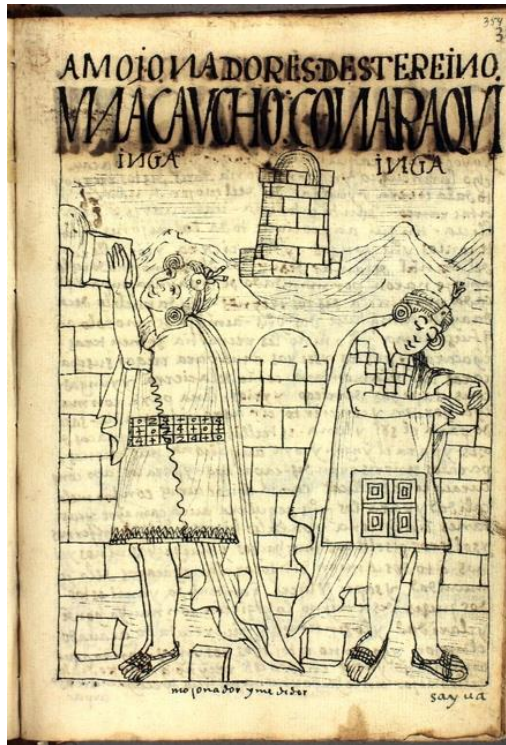 354
3
AMOJONADORES·DESTEREINO
VNACAVCHO:CONARAQVI
INGA INGA
mojonador y medidor
sayua